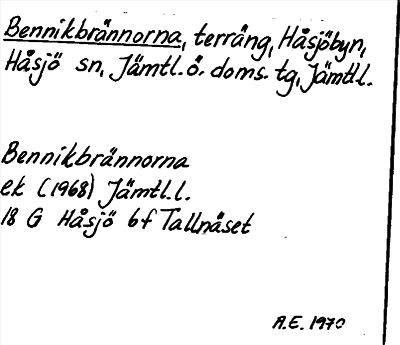 Bennikbrännorna, terräng, Håsjöbyn,
Håsjö sn, Jämtl.ö. doms. tg, Jämtl.l.
Bennikbrännorna
ek (1968) Jämtl.l.
18 G Håsjö 6f Tallnäset
A.E. 1970